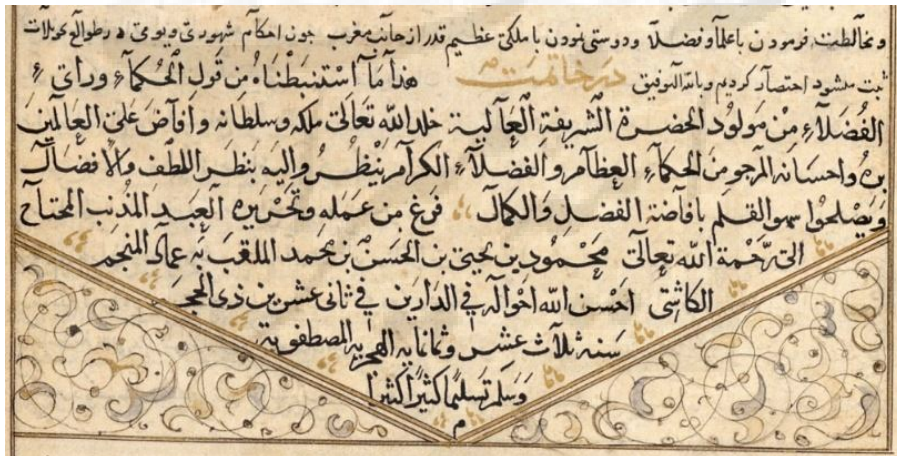 ومخالطت فرمودن با علما وفضلا ودوستی نمودن با ملکی عظیم قدر از جانب مغرب چون احکام شهوری ویومی در طوالع تحویلات
ثبت میشود اختصار کردیم وبالله التوفیق در خاتمت هذا ما استنبطناه من قول الحکماء ورأی
الفضلاء من مولود الحضرة الشریفة العالیة خلد الله تعالی ملکه وسلطانه وافاض علی العالمین
بره واحسانه المرجو من الحکماء العظام والفضلاء الکرام ینظر والیه بنظر اللطف والافضال
ویصلحوا سهو القلم بافاضة الفضل والکمال فرغ من عمله وتحریره العبد المذنب المحتاج
الی رحمة الله تعالی محمود بن یحیی بن الحسن بن محمد الملقب به عماد المنجم
الکاشی احسن الله احواله فی الدارین فی ثانی عشرین ذی الحجه
سنه ثلاث عشر وثمانمایه الهجریه المصطفویه
وسلم تسلیما کثیرا کثیرا
م